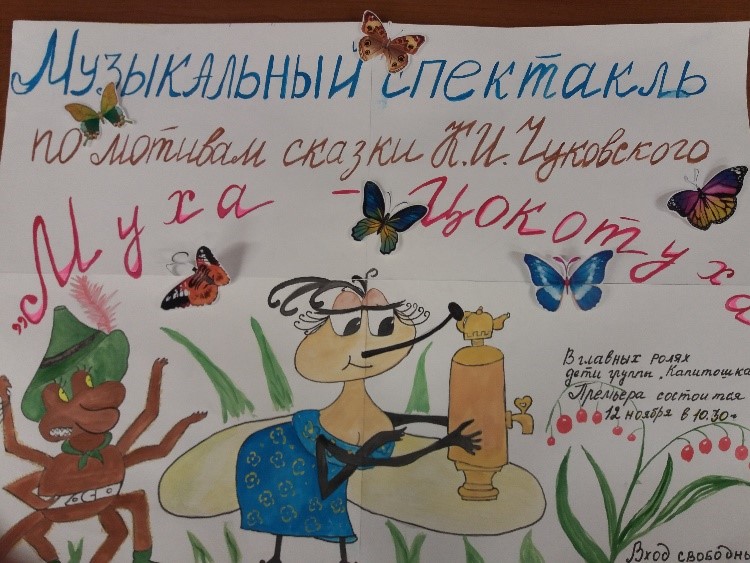 Музыкальный спектакль
по мотивам сказки К.И. Чуковского
„Муха - Цокотуха
В главных ролях
дети группы „Капитошка
Премьера состоится
12 ноября в 10.30ч
Вход свободны